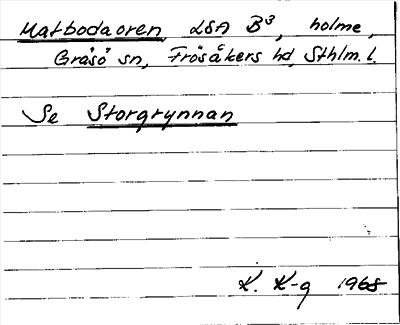 Matbodaoren, LSA B³, holme,
Gräsö sn, Frösåkers hd, Sthlm. l.
Se Storgrynnan
K. K-g 1968